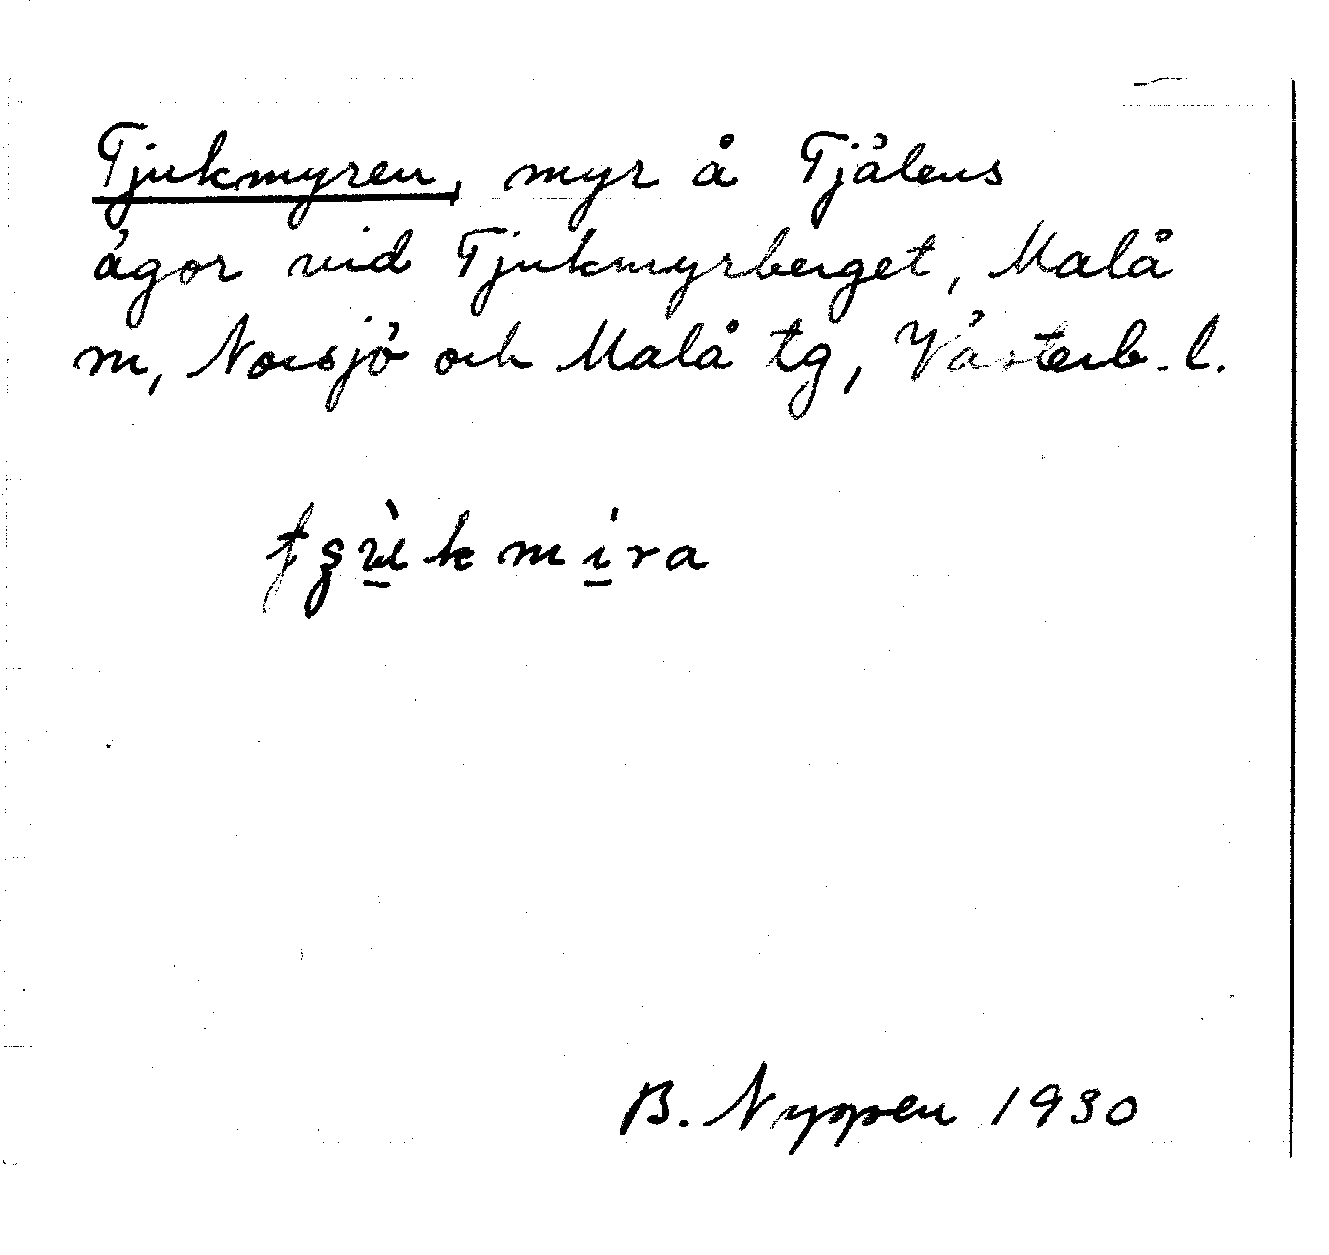 Tjukmyren, myr å Tjälens
ägor vid Tjukmyrberget, Malå
m, Norsjö och Malå tg, Västerb. l.
B. Nyppen 1930